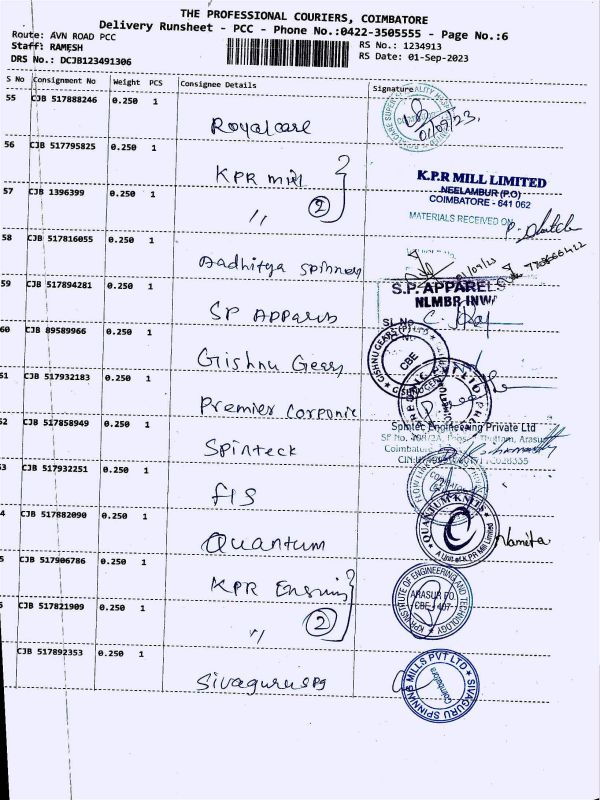 THE PROFESSIONAL COURIERS, COIMBATORE
Delivery Runsheet - PCC - Phone No.:0422-3505555 - Page No.:6
Route: AVN ROAD PCC
Staff: RAMESH
DRS No.: DCJB123491306
RS No.: 1234913
RS Date: 01-Sep-2023
S No Consignment No Weight PCS Consignee Details Signature
55 CJB 517888246 0.250 1
Royalcare
01/09/23.
56 CJB 517795825 0.250 1
KPR mill
K.P.R MILL LIMITED
NEELAMBUR (P.O)
COIMBATORE - 641 062
MATERIALS RECEIVED ON
57 CJB 1396399 0.250 1
〃 2
58 CJB 517816055 0.250 1
Aadhitya spinners
01/09/23
59 CJB 517894281 0.250 1
SP Apparels
S.P. APPARELS
NLMBR INW
SL No
60 CJB 89589966 0.250 1
Gishnu Gears
GISHNU GEARS (P)
CBE
51 CJB 517932183 0.250 1
Premier Corponic
52 CJB 517858949 0.250 1
Spinteck
Spintec Engineering Private Ltd
SF No. 408/2A, Thottam, Arasur
Coimbatore
53 CJB 517932251 0.250 1
FIS
FLOW LINK
4 CJB 517882090 0.250 1
Quantum
QUANTUM KNITS
A Unit of K.P.R Mill Limited
Namita
5 CJB 517906786 0.250 1
KPR
KPR INSTITUTE OF ENGINEERING AND TECHNOLOGY
ARASUR PO
CBE - 407
CJB 517821909 0.250 1
〃 2
CJB 517892353 0.250 1
Sivaguru spg
SIVAGURU SPINNING MILLS PVT LTD
Coimbatore